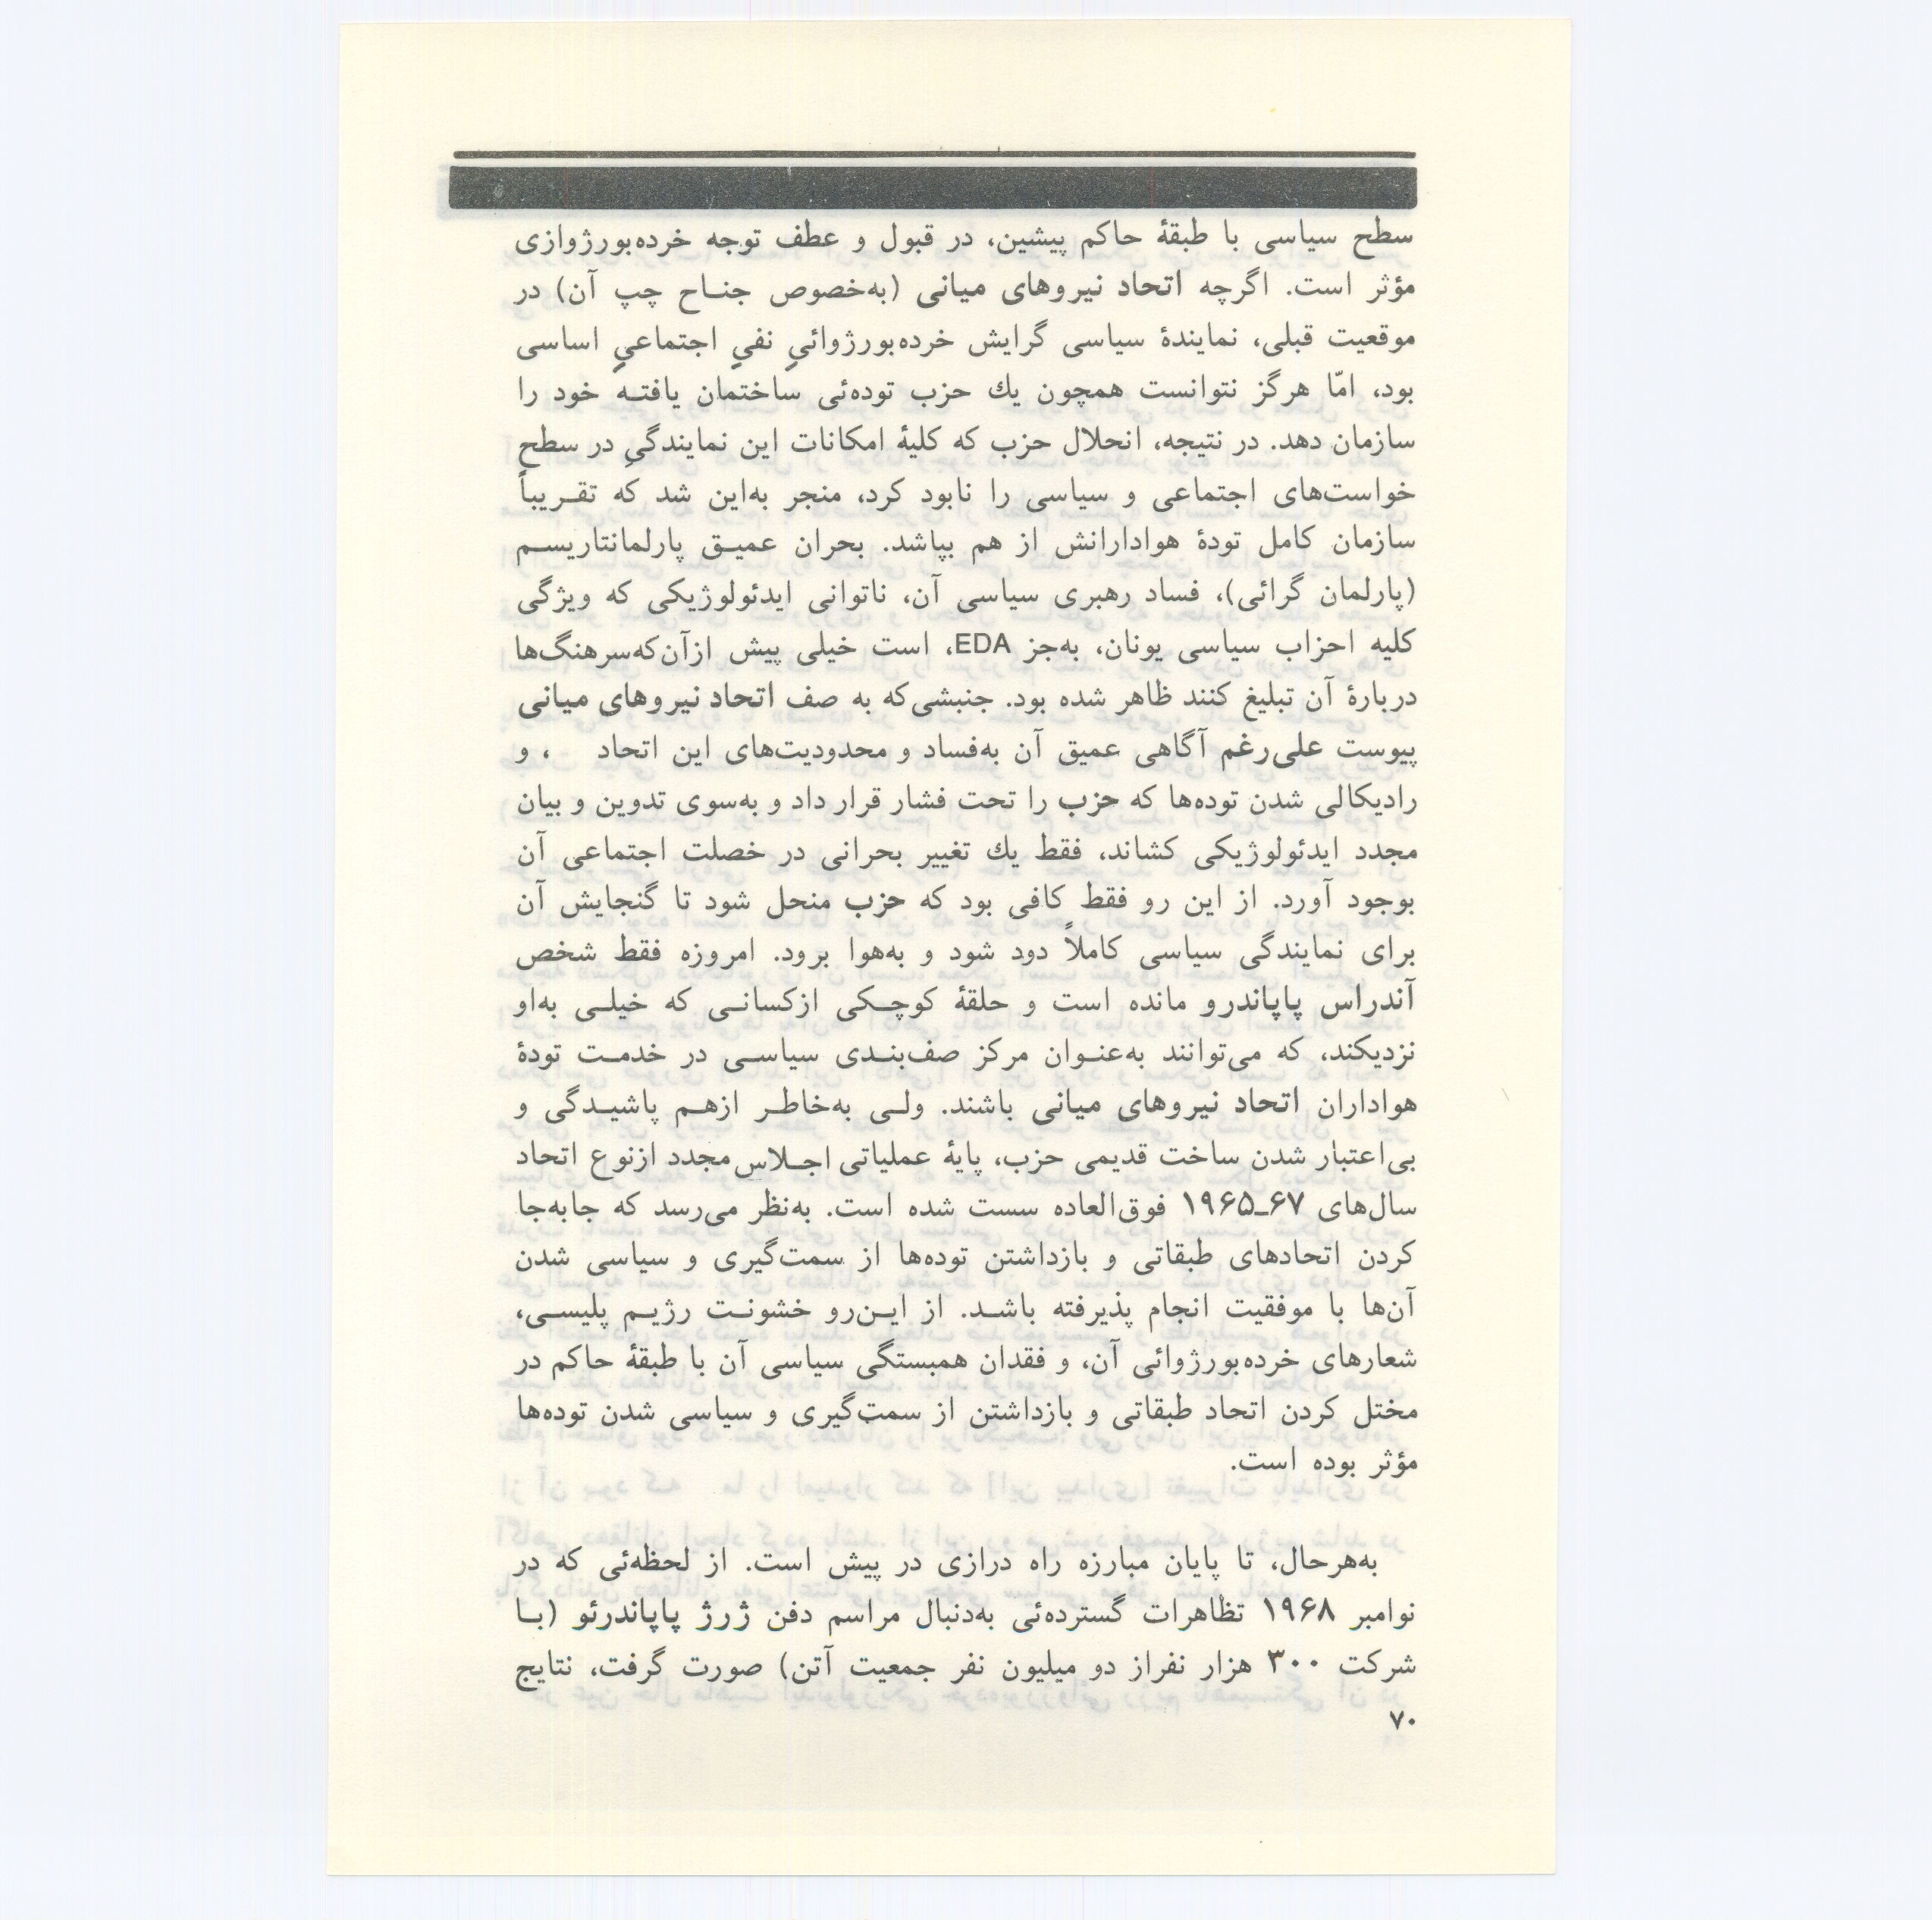 سطح سیاسی با طبقهٔ حاکم پیشین، در قبول و عطف توجه خرده‌بورژوازی
مؤثر است. اگرچه اتحاد نیروهای میانی (به‌خصوص جنـاح چپ آن) در
موقعیت قبلی، نمایندهٔ سیاسی گرایش خرده‌بورژوائیِ نفیِ اجتماعیِ اساسی
بود، امّا هرگز نتوانست همچون یك حزب توده‌ئی ساختمان یافتـه خود را
سازمان دهد. در نتیجه، انحلال حزب که کلیهٔ امکانات این نمایندگیِ در سطح
خواست‌های اجتماعی و سیاسی را نابود کرد، منجر به‌این شد که تقـریباً
سازمان کامل تودهٔ هوادارانش از هم بپاشد. بحران عمیـق پارلمانتاریسـم
(پارلمان گرائی)، فساد رهبری سیاسی آن، ناتوانی ایدئولوژیکی که ویژگی
کلیه احزاب سیاسی یونان، به‌جز EDA، است خیلی پیش ازآن‌که‌سرهنگ‌ها
دربارهٔ آن تبلیغ کنند ظاهر شده بود. جنبشی‌که به صف اتحاد نیروهای میانی
پیوست علی‌رغم آگاهی عمیق آن به‌فساد و محدودیت‌های این اتحاد ، و
رادیکالی شدن توده‌ها که حزب را تحت فشار قرار داد و به‌سوی تدوین و بیان
مجدد ایدئولوژیکی کشاند، فقط یك تغییر بحرانی در خصلت اجتماعی آن
بوجود آورد. از این رو فقط کافی بود که حزب منحل شود تا گنجایش آن
برای نمایندگی سیاسی کاملاً دود شود و به‌هوا برود. امروزه فقط شخص
آندراس پاپاندرو مانده است و حلقهٔ کوچـکی ازکسانـی که خیلـی به‌او
نزدیکند، که می‌توانند به‌عنـوان مرکز صف‌بنـدی سیاسـی در خدمـت تودهٔ
هواداران اتحاد نیروهای میانی باشند. ولـی به‌خاطـر ازهـم پاشیـدگی و
بی‌اعتبار شدن ساخت قدیمی حزب، پایهٔ عملیاتی اجـلاس مجدد ازنوع اتحاد
سال‌های ۶۷ـ۱۹۶۵ فوق‌العاده سست شده است. به‌نظر می‌رسد که جابه‌جا
کردن اتحادهای طبقاتی و بازداشتن توده‌ها از سمت‌گیری و سیاسی شدن
آن‌ها با موفقیت انجام پذیرفته باشـد. از ایـن‌رو خشونـت رژیـم پلیسـی،
شعارهای خرده‌بورژوائی آن، و فقدان همبستگی سیاسی آن با طبقهٔ حاکم در
مختل کردن اتحاد طبقاتی و بازداشتن از سمت‌گیری و سیاسی شدن توده‌ها
مؤثر بوده است.
به‌هرحال، تا پایان مبارزه راه درازی در پیش است. از لحظه‌ئی که در
نوامبر ۱۹۶۸ تظاهرات گسترده‌ئی به‌دنبال مراسم دفن ژرژ پاپاندرئو (بـا
شرکت ۳۰۰ هزار نفراز دو میلیون نفر جمعیت آتن) صورت گرفت، نتایج
۷۰